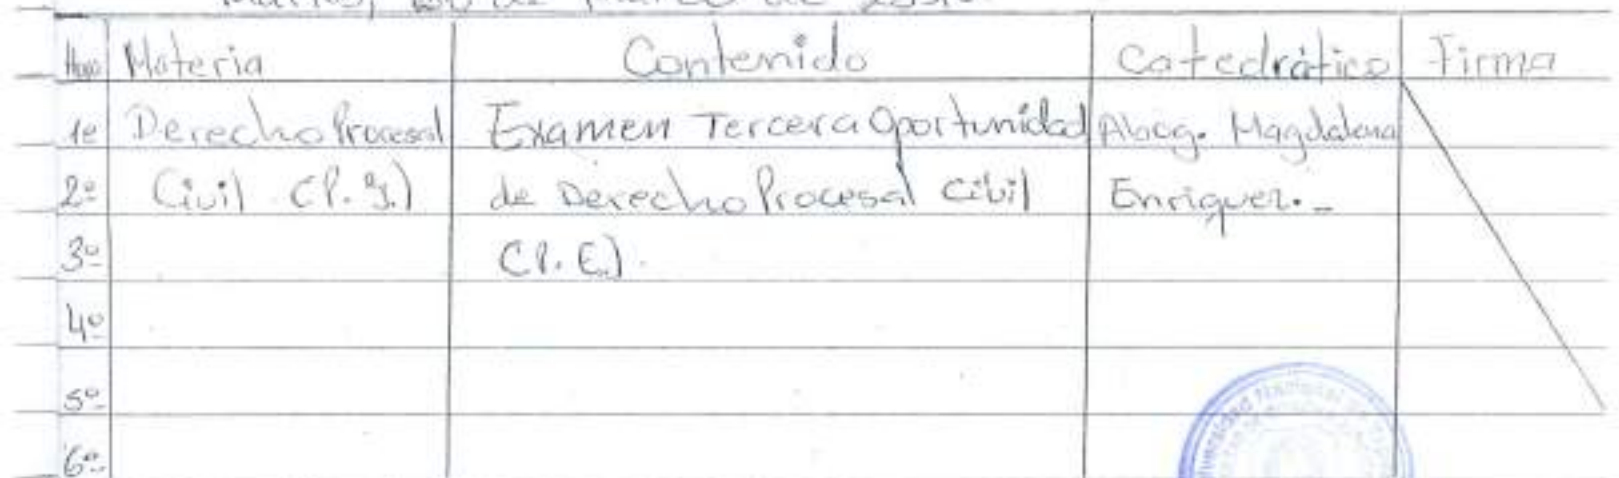 Martes, de Marzo de
Hora Materia Contenido Catedrático Firma
1º Derecho Procesal Examen Tercera Oportunidad Abog. Magdalena
2º Civil de Derecho Procesal Civil Enriquez.-
3º (P.E.).
4º
5º
6º
Nacional